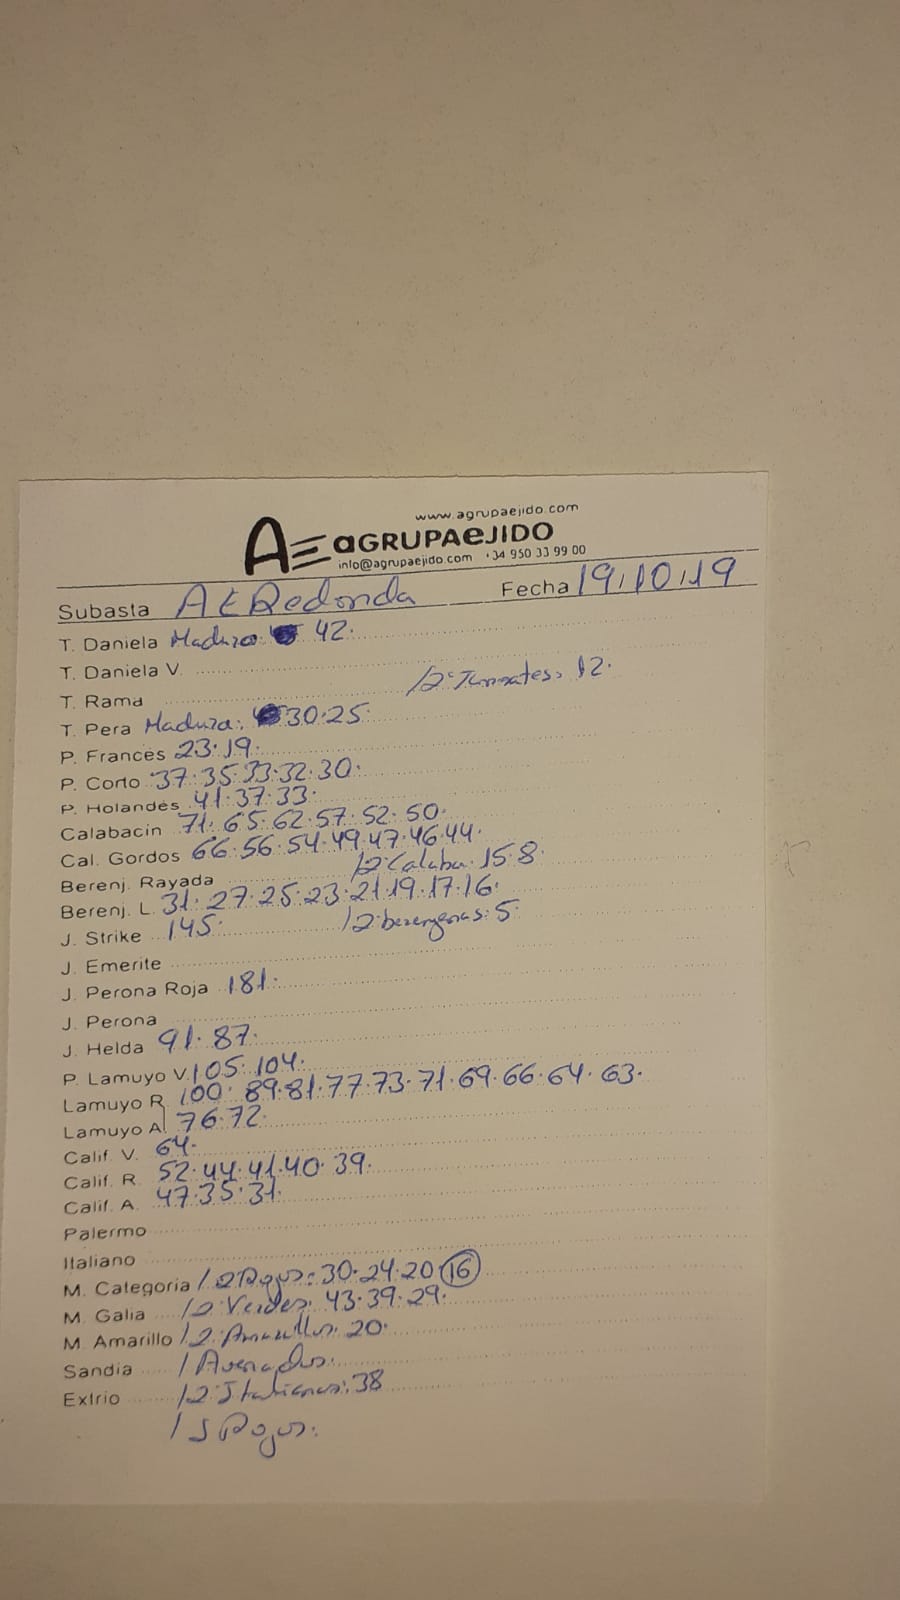 www.agrupaejido.com
AE aGRUPAeJIDO
info@agrupaejido.com +34 950 33 99 00
Subasta AE Redonda Fecha 19/10/19
T. Daniela Madura: 42.
T. Daniela V.
T. Rama /2ª Tomates: 12.
T. Pera Madura: 30.25.
P. Francés 23.19.
P. Corto 37.35.33.32.30.
P. Holandés 41.37.33.
Calabacin 71.65.62.57.52.50.
Cal. Gordos 66.56.54.49.47.46.44.
Berenj. Rayada /2ª Calaba: 15.8.
Berenj. L. 31.27.25.23.21.19.17.16.
J. Strike 145. /2ª berengenas: 5.
J. Emerite
J. Perona Roja 181.
J. Perona
J. Helda 91.87.
P. Lamuyo V. 105.104.
Lamuyo R. 100.89.81.77.73.71.69.66.64.63.
Lamuyo A. 76.72.
Calif. V. 64.
Calif. R. 52.44.41.40.39.
Calif. A. 47.35.31.
Palermo
Italiano
M. Categoria /2 Rojos: 30.24.20 16
M. Galia /2 Verdes: 43.39.29.
M. Amarillo /2. Amarillos: 20.
Sandia /
Extrio /2 Italianos: 38
/ Rojos: